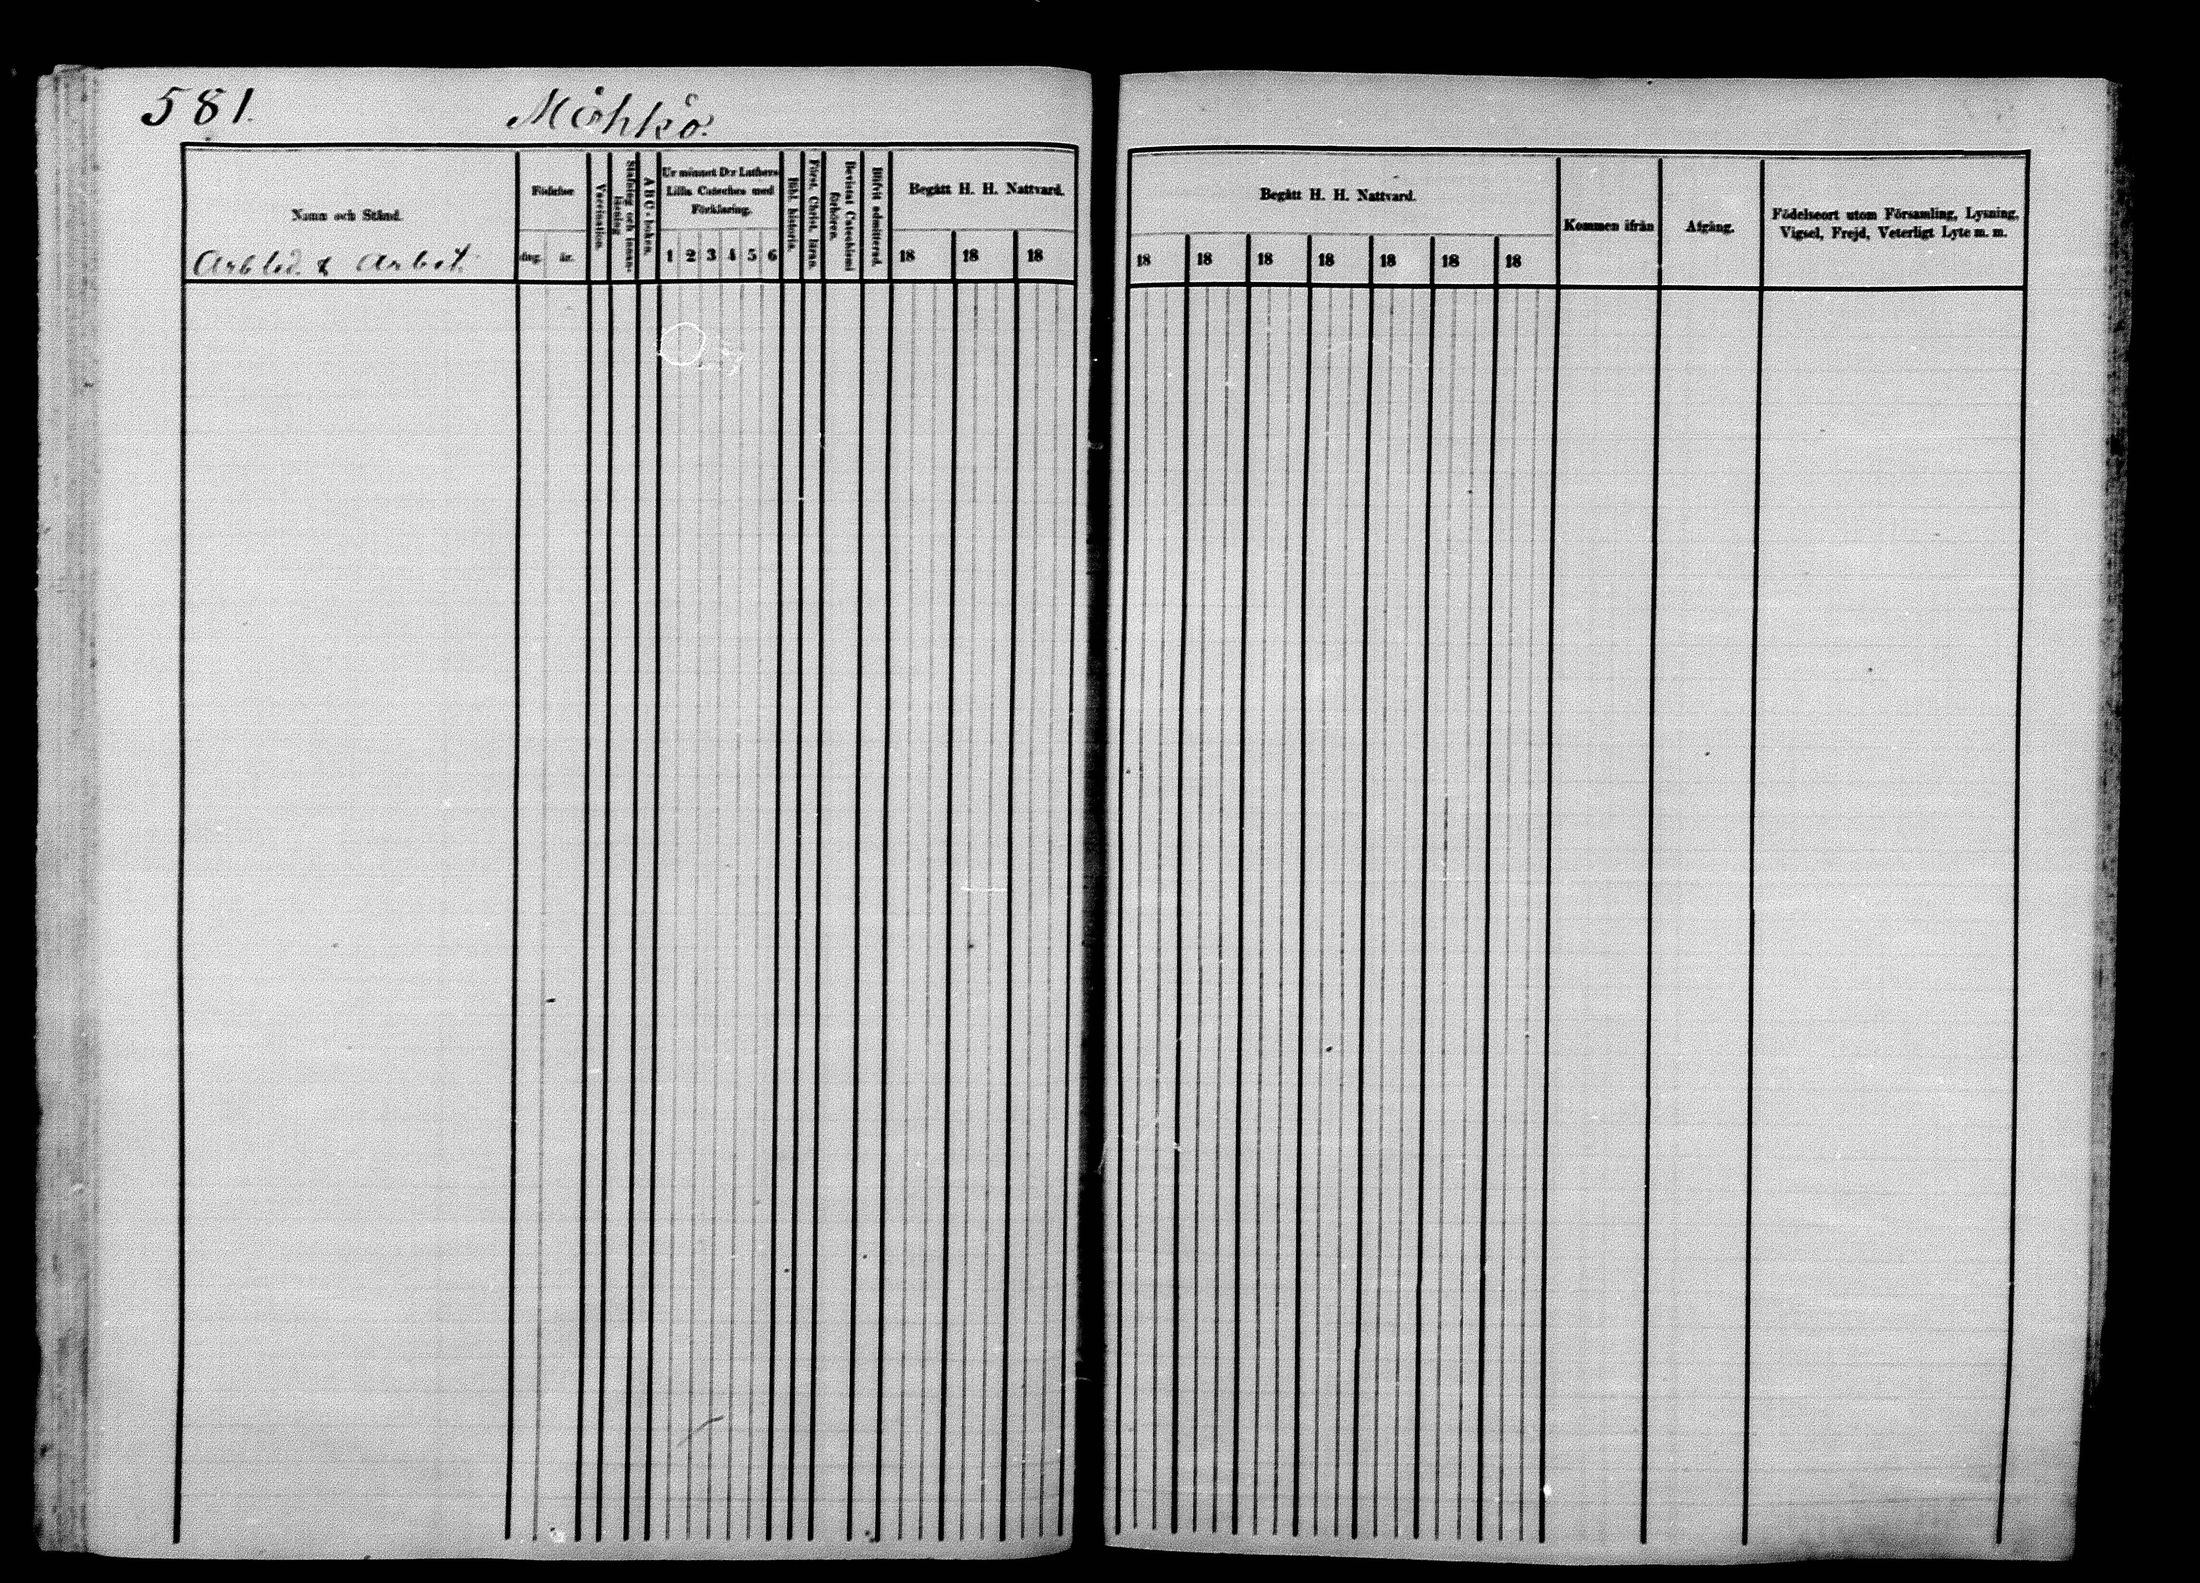 581.
Möhkö.
Namn och Stånd.
Arbtod. & Arbet.
Födelse
dag. år.
Vaccination.
Stafning och innan-
läsning
A B C - boken.
Ur minnet D:r Luthers
Lilla Cateches med
Förklaring.
1 2 3 4 5 6
Bibl. historia.
Först. Christ. läran.
Bevistat Catechismi
förhören.
Blifvit admitterad.
Begått H. H. Nattvard.
18 18 18
Begått H. H. Nattvard.
18 18 18 18 18 18 18
Kommen ifrån
Afgång.
Födelseort utom Församling, Lysning,
Vigsel, Frejd, Veterligt Lyte m. m.